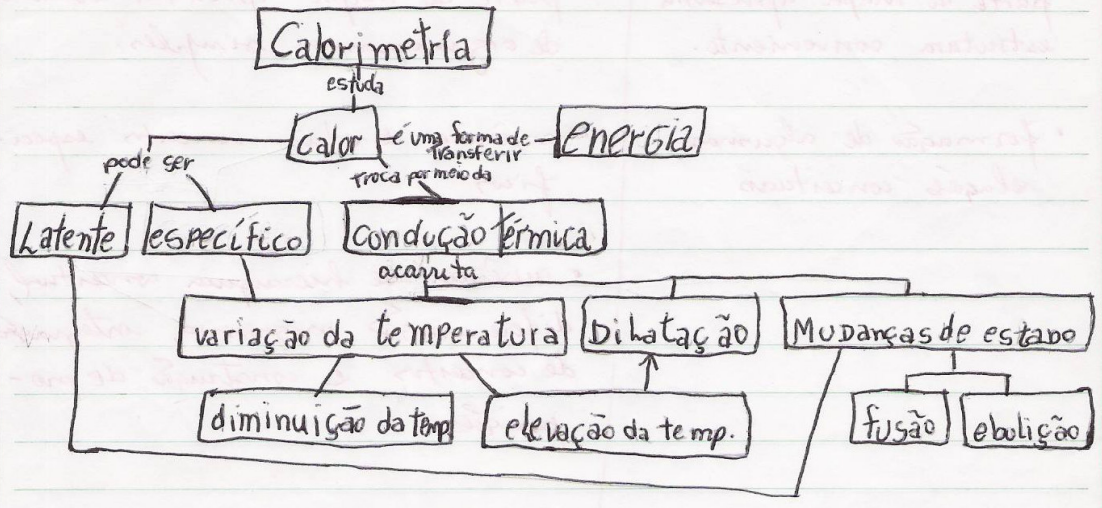 Calorimetria
estuda
Calor
é uma forma de
Transferir
energia
pode ser
troca por meio da
Latente
específico
condução térmica
acarreta
variação da temperatura
Dilatação
Mudanças de estado
diminuição da temp
elevação da temp.
fusão
ebulição